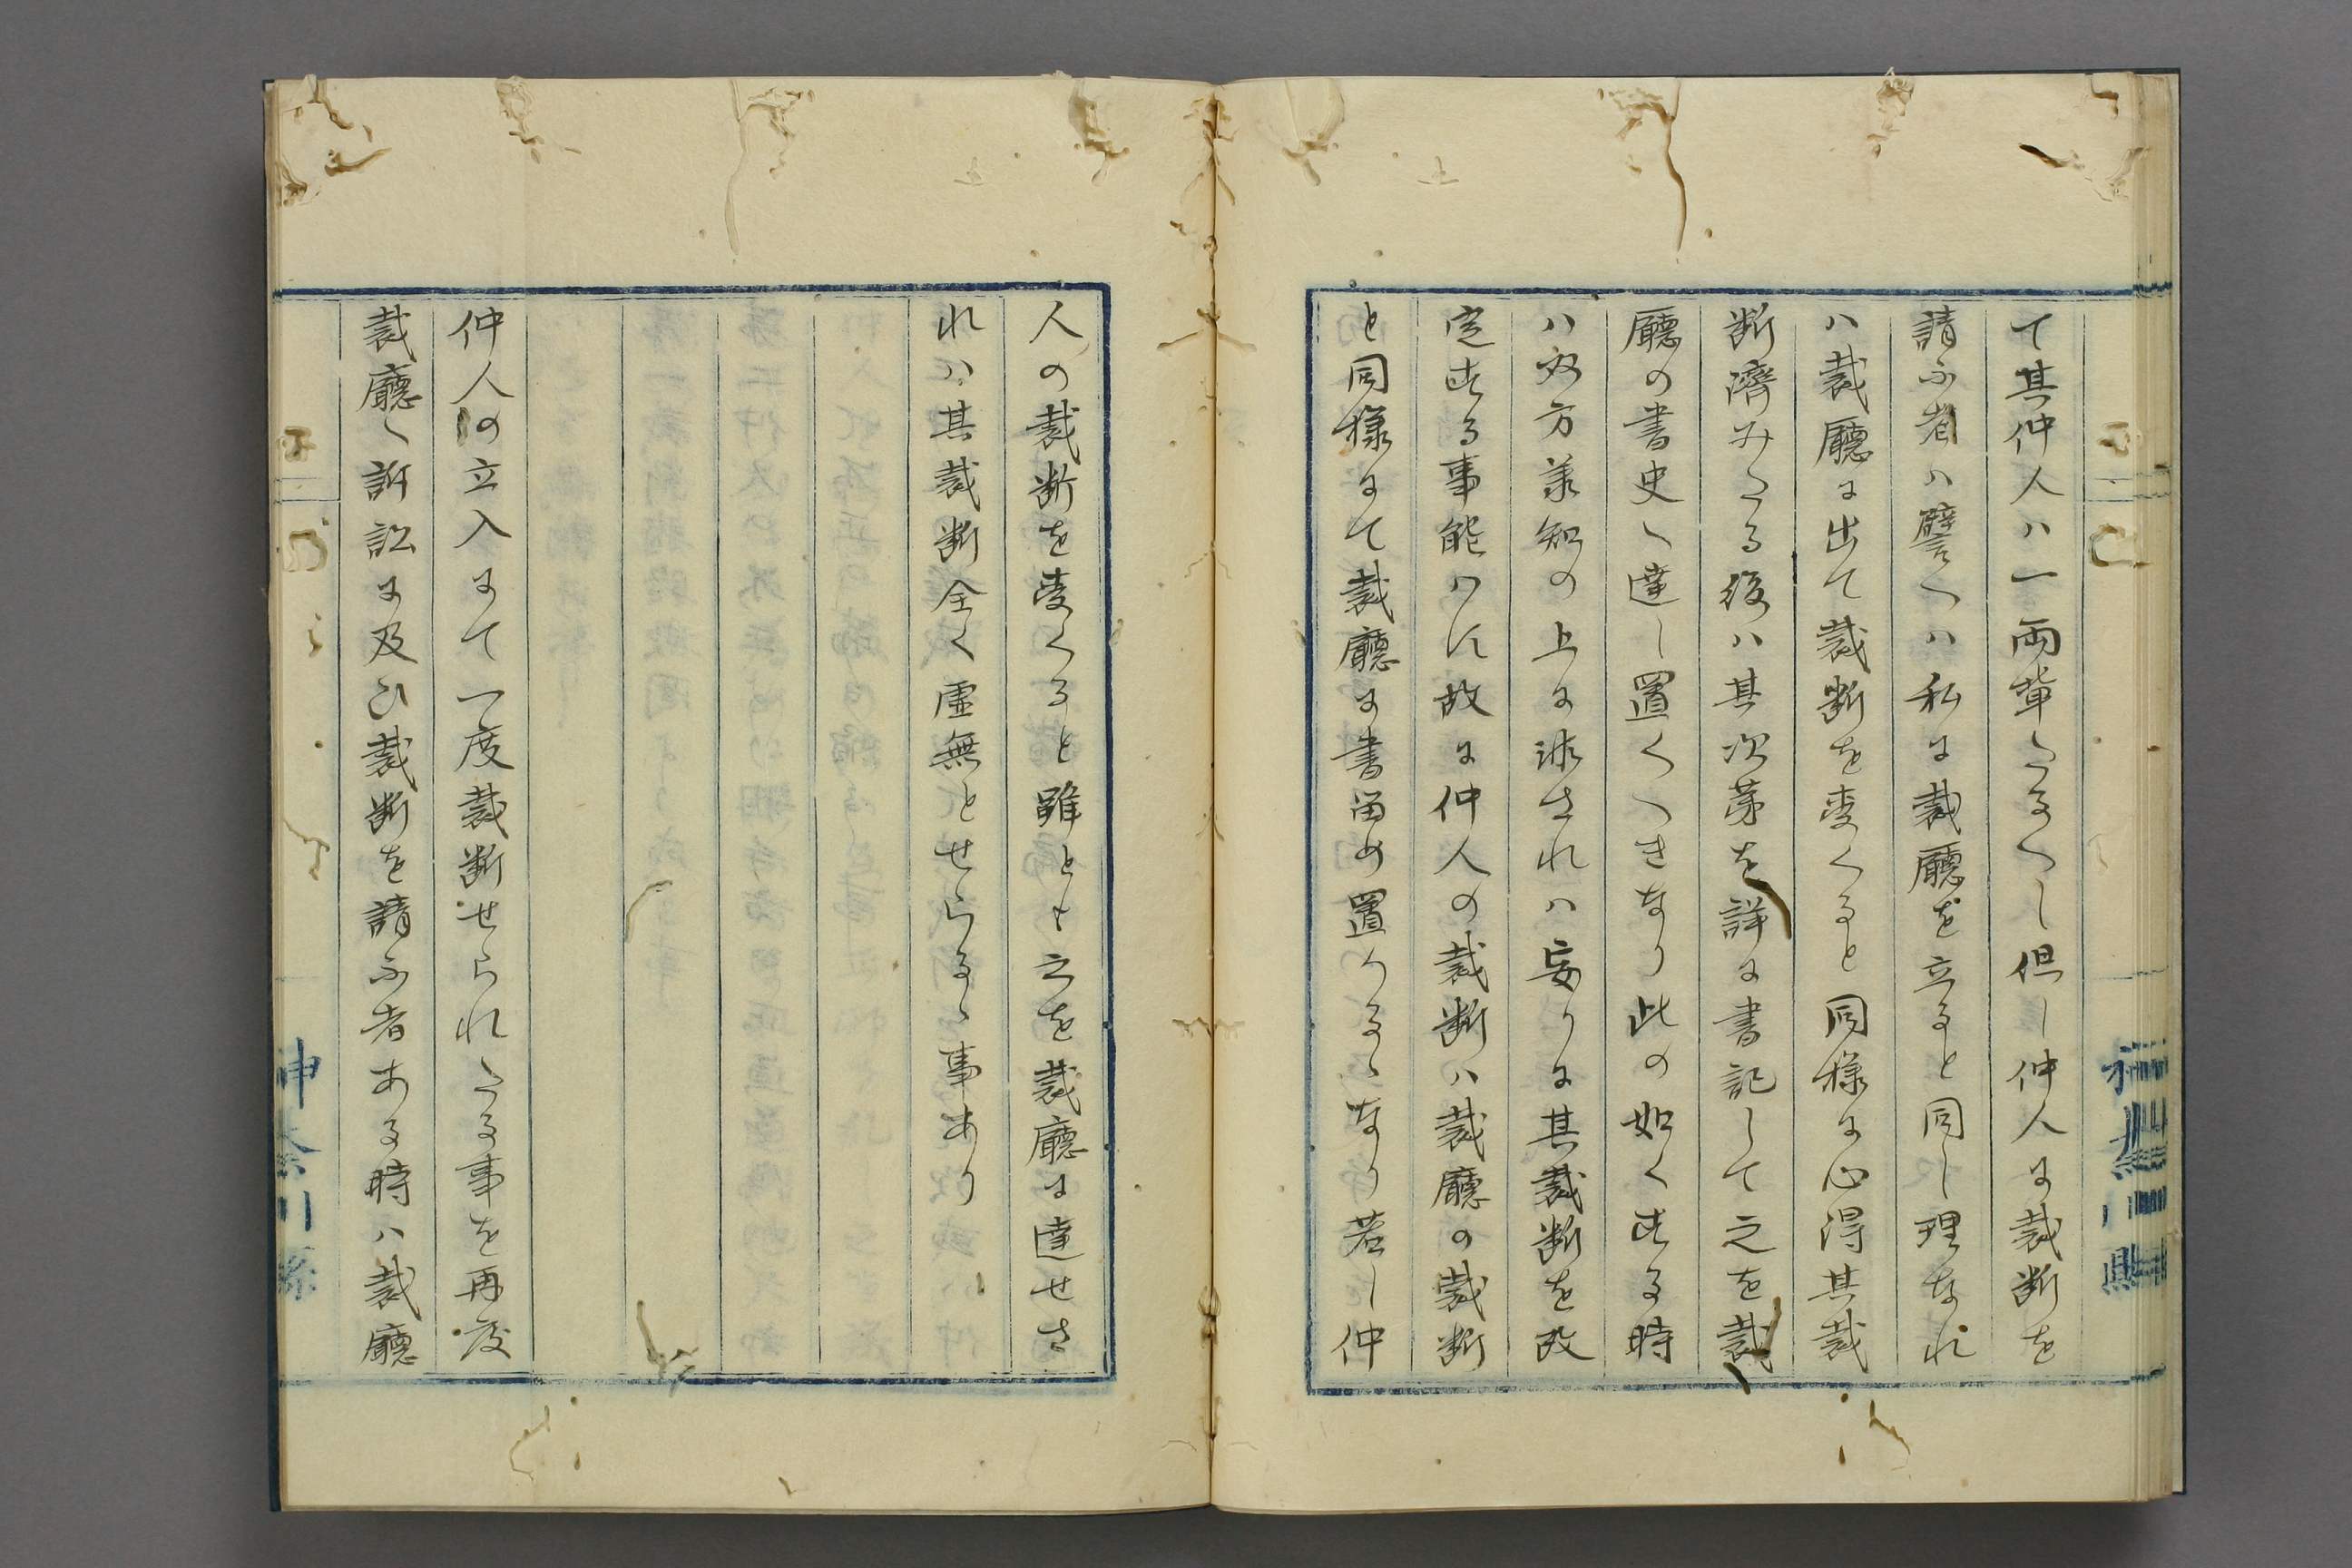 て其仲人ハ一両輩たるへし但し仲人に裁断を
請ふ者ハ譬へハ私に裁廳を立ると同し理なれ
ハ裁廳に出て裁断を受くると同様に心得其裁
断濟みたる後ハ其次第を詳に書記して之を裁
廳の書史へ達し置くへきなり此の如くする時
ハ双方承知の上に非されハ妄りに其裁断を改
定する事能ハす故に仲人の裁断ハ裁廳の裁断
と同様にて裁廳に書留め置かるゝなり若し仲
人の裁断を受くると雖とも之を裁廳に達せさ
れハ其裁断全く虚無とせらるゝ事あり
仲人の立入にて一度裁断せられたる事を再度
裁廳へ訴訟に及ひ裁断を請ふ者ある時ハ裁廳
神奈川縣